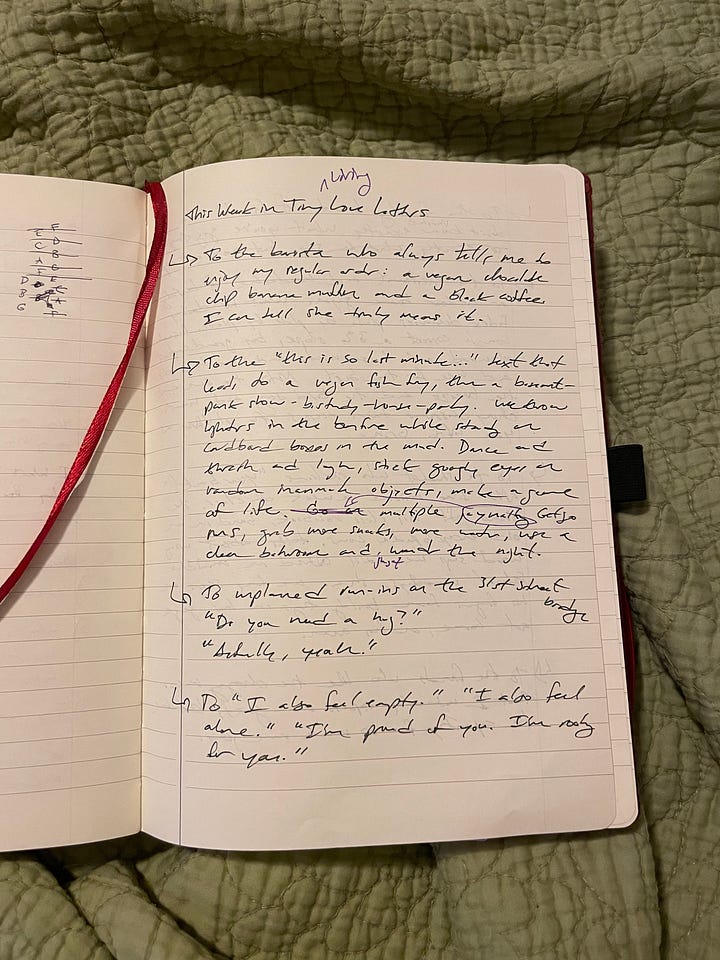 F
E D
C B
A G
F E
D C
B A
G F
^ Living
This Week in Tiny Love Letters
↳ To the barista who always tells me to
enjoy my regular order: a vegan chocolate
chip banana muffin and a black coffee.
I can tell she truly means it.
↳ To the "this is so last minute..." text that
leads to a vegan fish fry, then a basement-
punk show-birthday-house-party. We throw
lighters in the bonfire while standing on
cardboard boxes in the mud. Dance and
thrash and laugh, stick googly eyes on
random inanimate objects, make a game
of life. Go on multiple GetGo
runs, grab more snacks, more water, use a
clean bathroom and, just wander the night.
↳ To unplanned run-ins on the 31st street
bridge
"Do you need a hug?"
"Actually, yeah."
↳ To "I also feel empty." "I also feel
alone." "I'm proud of you. I'm rooting
for you."